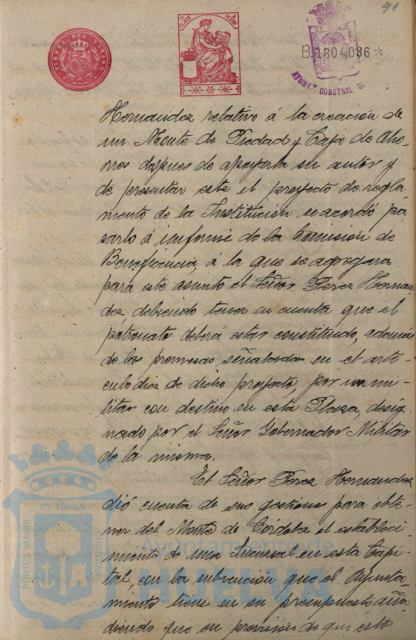 91
B.1804036*
Hernandez relativo á la creacion de
un Monte de Piedad y Caja de Aho-
rros despues de apoyarla su autor y
de presentar este el proyecto de regla-
mento de la Institución se acordó pa-
sarlo á informe de la Comision de
Beneficencia, á la que se agregara
para este asunto el Señor Perez Hernan-
dez, debiendo tener en cuenta que el
patronato deberá estar constituido, ademas
de las personas señaladas en el arti-
culo diez de dicho proyecto, por un mi-
litar con destino en esta Plaza, desig-
nado por el Señor Gobernador Militar
de la misma.
El Señor Perez Hernandez
dió cuenta de sus gestiones para obte-
ner del Monte de Córdoba el estableci-
miento de una sucursal en esta Capi-
tal, con la subvencion que el Ayunta-
miento tiene en su presupuesto aña-
diendo que en prevision de que esto